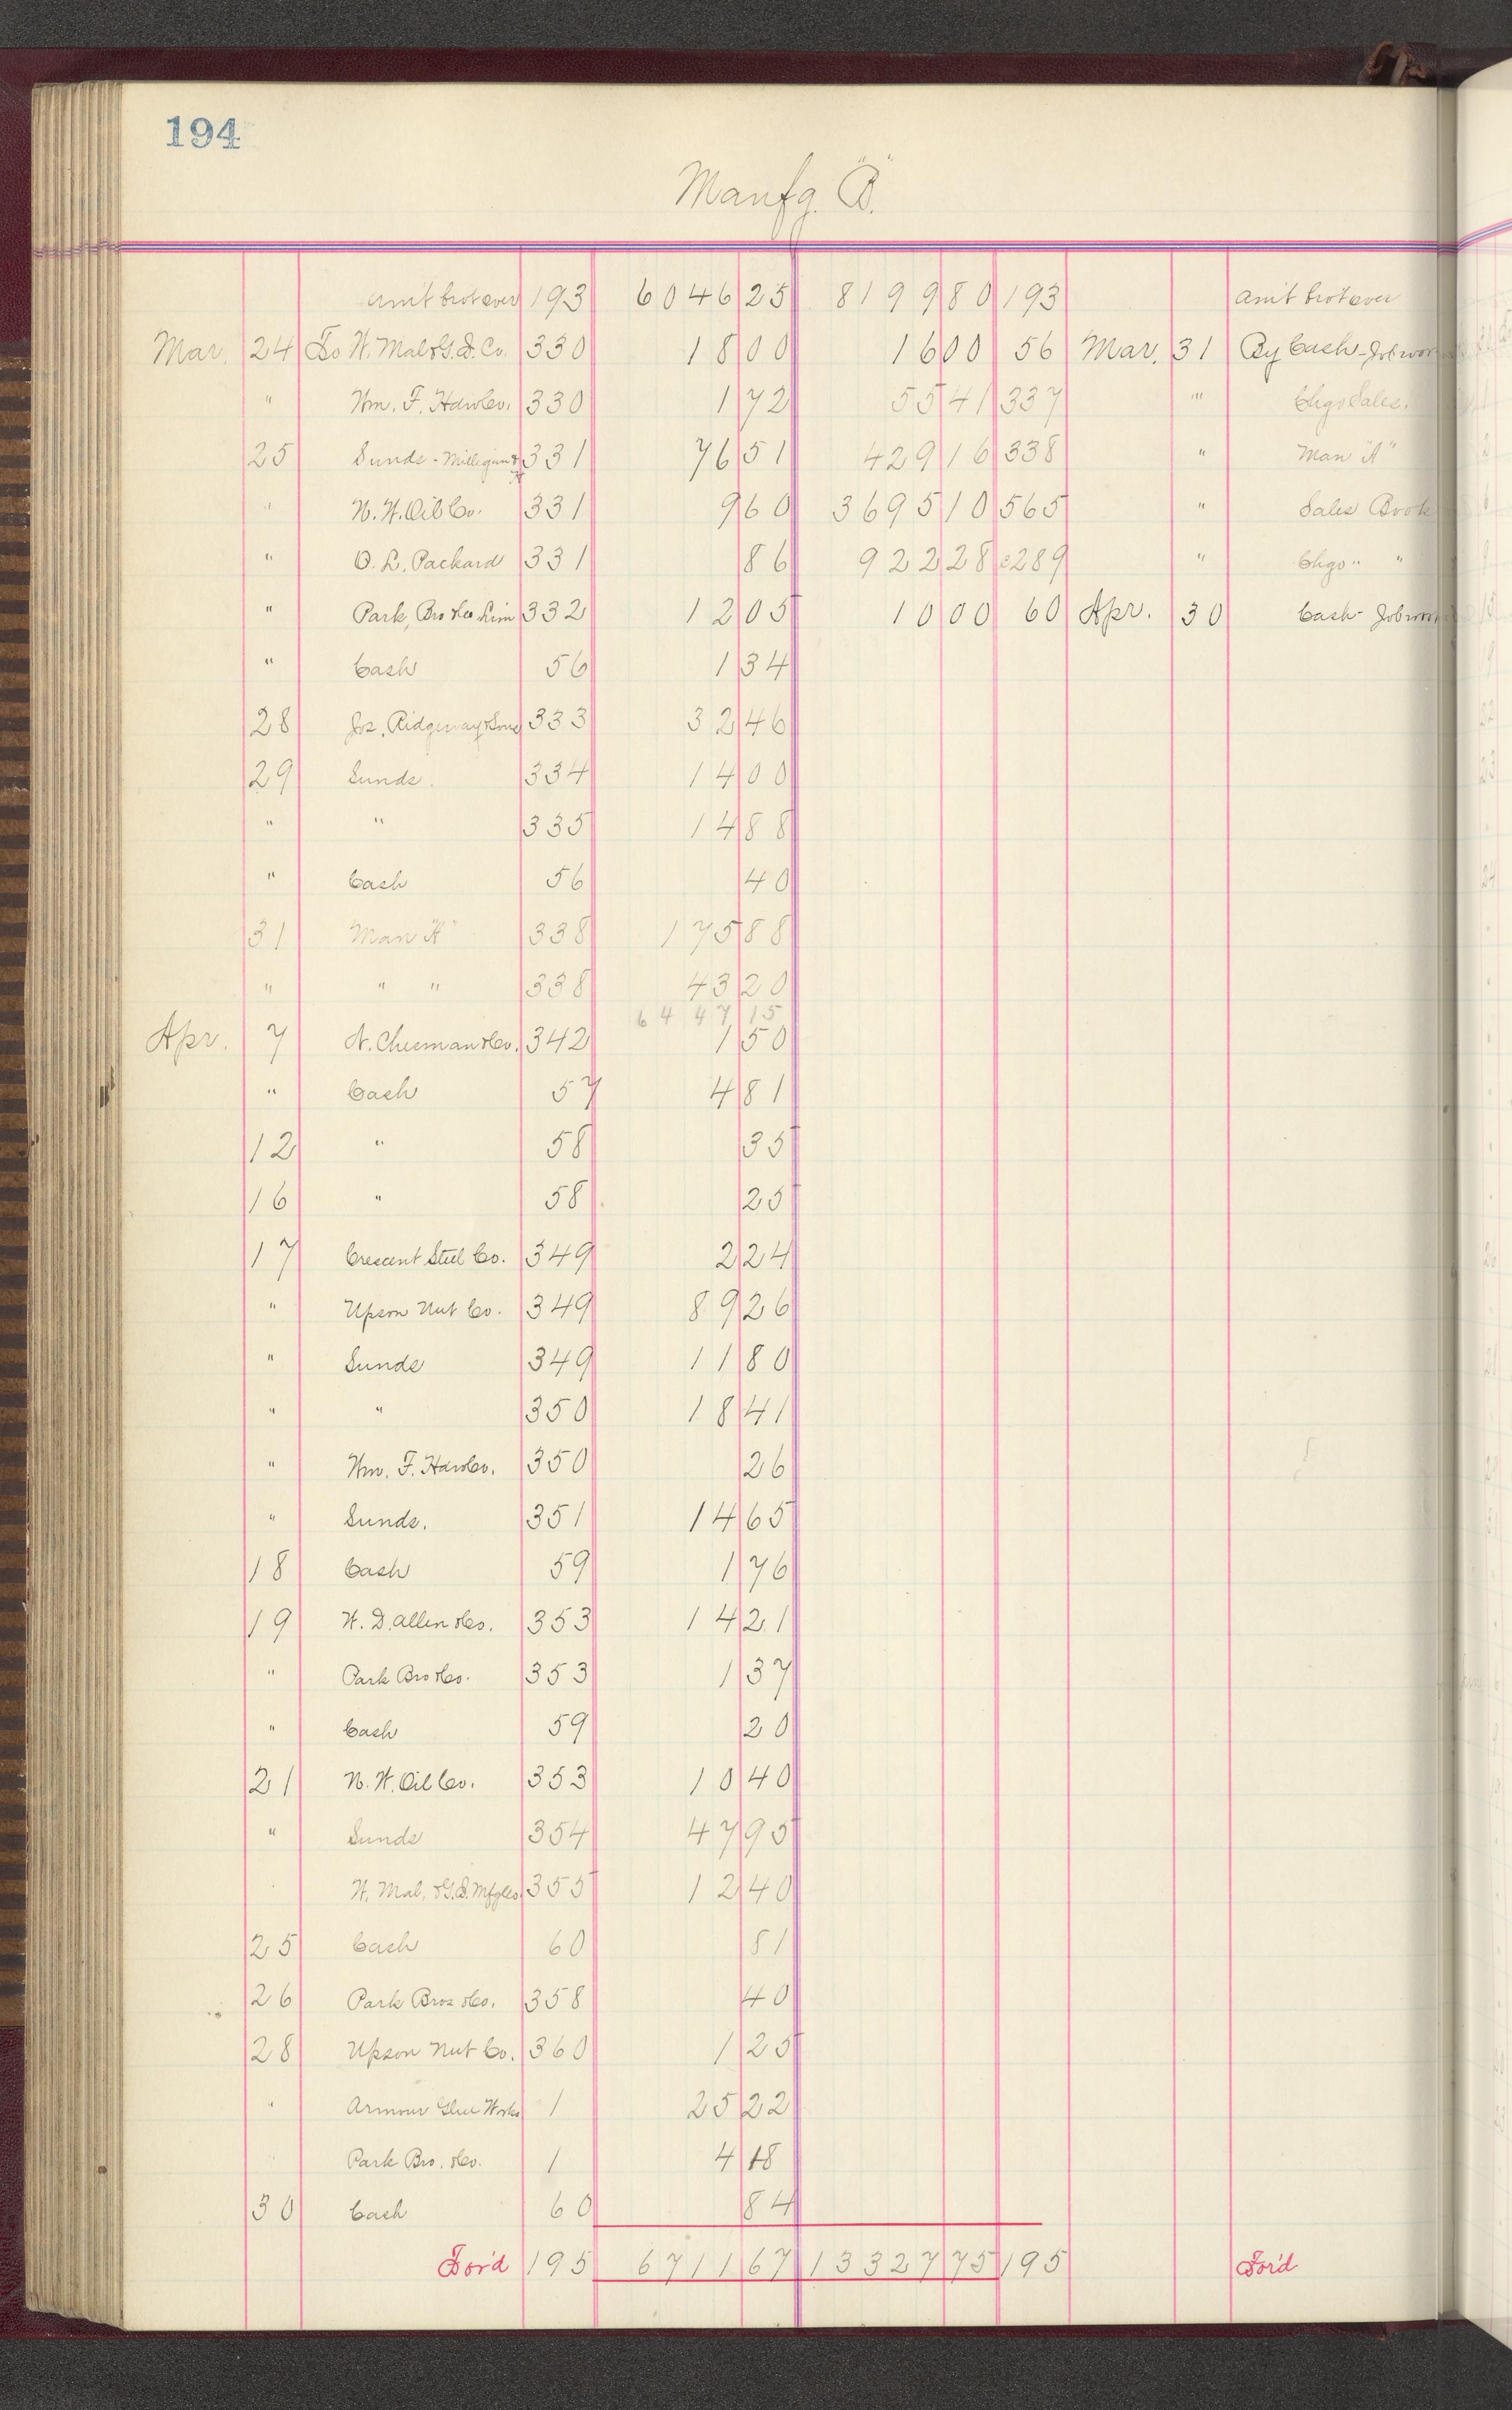 194
Manfg. "B".
Am't brot over 193 6046 25 8199 80 193 Am't brot over
Mar. 24 To W. Mal & G. D. Co. 330 18 00 16 00 56 Mar. 31 By Cash - Jobwor
" Wm. F. H 330 1 72 55 41 337 " Chgo Sales.
25 Sunds - Milligan & 331 76 51 429 16 338 " Man "A"
" N. W. Oil Co. 331 9 60 3695 10 565 " Sales Book
" O. L. Packard 331 86 922 28 c289 " Chgo " "
" Park, Bro & Co Lim 332 12 05 10 00 60 Apr. 30 Cash - Jobwor
" Cash 56 1 34
28 Jos. Ridgeway & Sons 333 32 46
29 Sunds. 334 14 00
" " 335 14 88
" Cash 56 40
31 Man "A" 338 175 88
" " " 338 43 20
6447 15
Apr. 7 N. Cheeman & Co. 342 1 50
" Cash 57 4 81
12 " 58 35
16 " 58 25
17 Crescent Steel Co. 349 2 24
" Upson Nut Co. 349 89 26
" Sunds 349 11 80
" " 350 18 41
" Wm. F. H 350 26
" Sunds. 351 14 65
18 Cash 59 1 76
19 W. D. Allen & Co. 353 14 21
" Park Bro & Co. 353 1 37
" Cash 59 20
21 N. W. Oil Co. 353 10 40
" Sunds 354 47 95
W. Mal. & G. D. Mfg Co. 355 12 40
25 Cash 60 81
26 Park Bros & Co. 358 40
28 Upson Nut Co. 360 1 25
" Armour Glue Works 1 25 22
Park Bro. & Co. 1 4 18
30 Cash 60 84
For'd 195 6711 67 13327 75 195 For'd